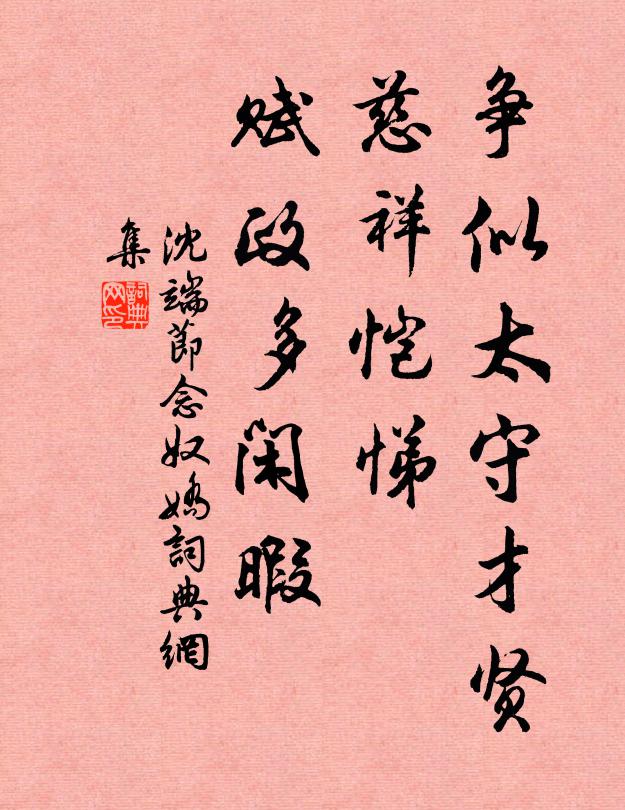 争似太守才贤
慈祥恺悌
赋政多闲暇
沈端節念奴嬌詞典網
集
詞典
网印